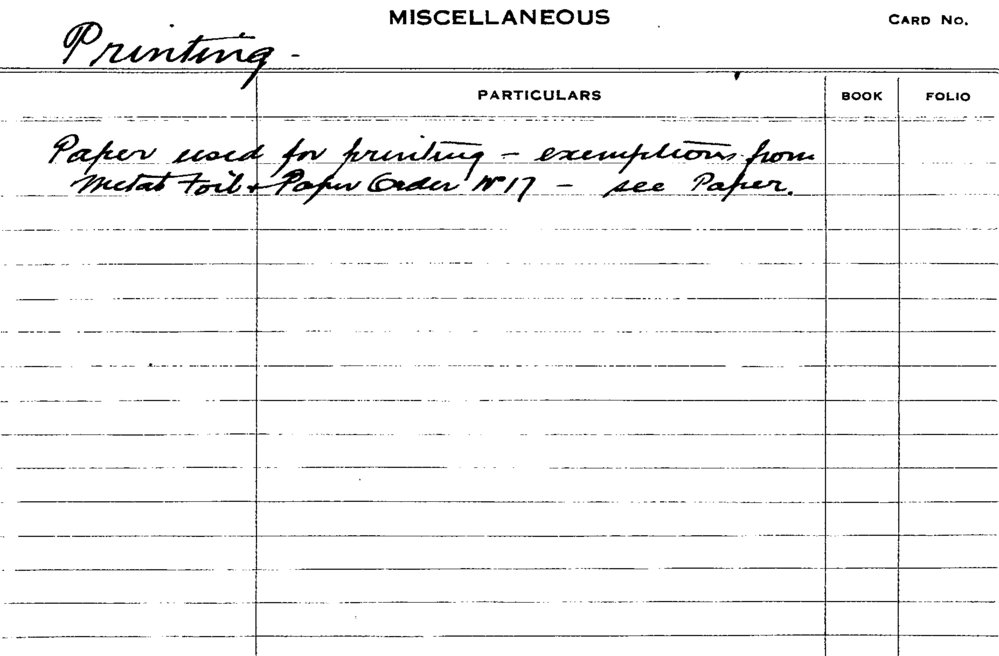 MISCELLANEOUS
CARD NO.
Printing -
PARTICULARS
BOOK
FOLIO
Paper used for printing - exemptions from
Metal Foil & Paper Order No 17 - see Paper.